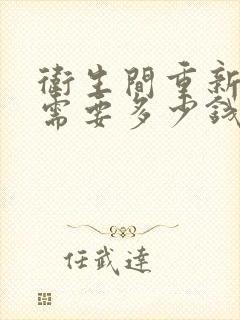 衛生間重新
需要多少錢
任武達